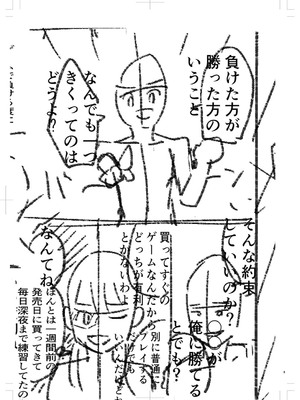 負けた方が
勝った方の
いうこと
なんでも一つ
きくってのは
どうよ?
そんな約束
していいのか?
俺に勝てる
とでも?
買ってすぐの
ゲームなんだから
どっちが有利
とかないわよ
別に普通に
プレイする
だけでも
いいんだけど
なんてね
ほんとは一週間前の
発売日に買ってきて
毎日深夜まで練習してたの